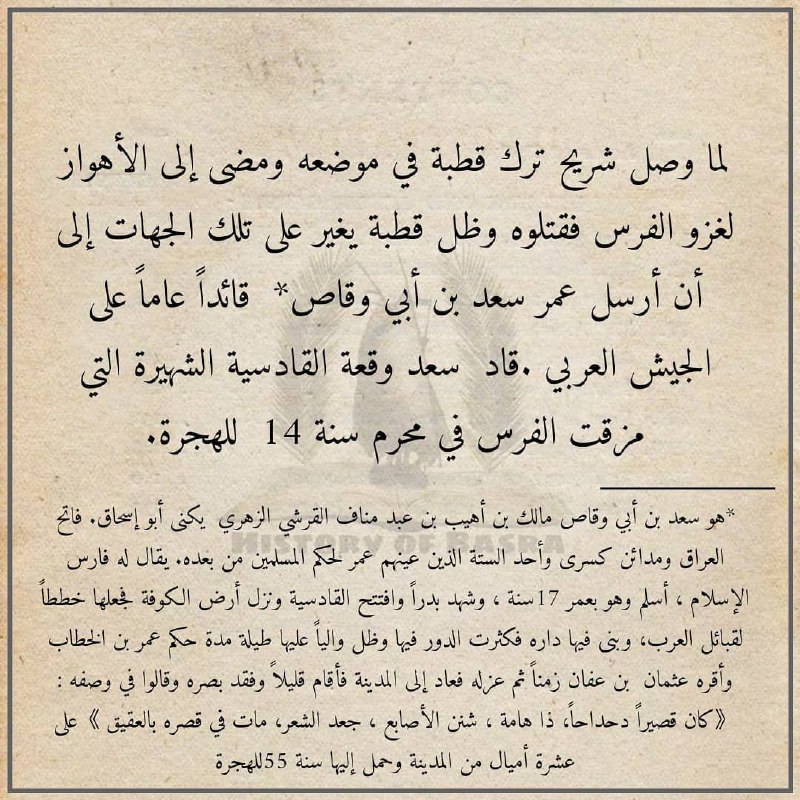 لما وصل شريح ترك قطبة في موضعه ومضى إلى الأهواز
لغزو الفرس فقتلوه وظل قطبة يغير على تلك الجهات إلى
أن أرسل عمر سعد بن أبي وقاص* قائداً عاماً على
الجيش العربي .قاد سعد وقعة القادسية الشهيرة التي
مزقت الفرس في محرم سنة 14 للهجرة.
*هو سعد بن أبي وقاص مالك بن أهيب بن عبد مناف القرشي الزهري يكنى أبو إسحاق. فاتح
العراق ومدائن كسرى وأحد الستة الذين عينهم عمر لحكم المسلمين من بعده. يقال له فارس
الإسلام ، أسلم وهو بعمر 17سنة ، وشهد بدراً وافتتح القادسية ونزل أرض الكوفة فجعلها خططاً
لقبائل العرب، وبنى فيها داره فكثرت الدور فيها وظل والياً عليها طيلة مدة حكم عمر بن الخطاب
وأقره عثمان بن عفان زمناً ثم عزله فعاد إلى المدينة فأقام قليلاً وفقد بصره وقالوا في وصفه :
《كان قصيراً دحداحاً، ذا هامة ، شثن الأصابع ، جعد الشعر، مات في قصره بالعقيق 》 على
عشرة أميال من المدينة وحمل إليها سنة 55للهجرة
HISTORY OF BASRA